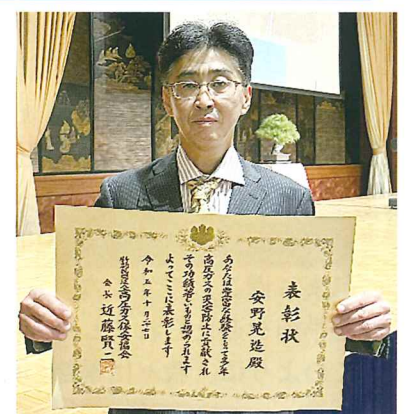 表彰状
安野晃造殿
あなたは豊富な経験をもって多年
高圧ガスの災害防止に貢献され
その功績著しいものと認められます
よってここに表彰します
令和五年十月二十七日
高圧ガス保安協会
会長 近藤賢二